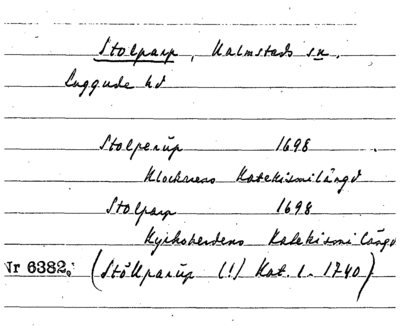 Stolparp, Halmstads sn.
Luggude hd
Stolperup 1698
Klockrens Katekismilängd
Stolparp 1698
Kyrkoherdens Katekismilängd
Nr 6382. (Stållparup (!) Kat. l. 1740)